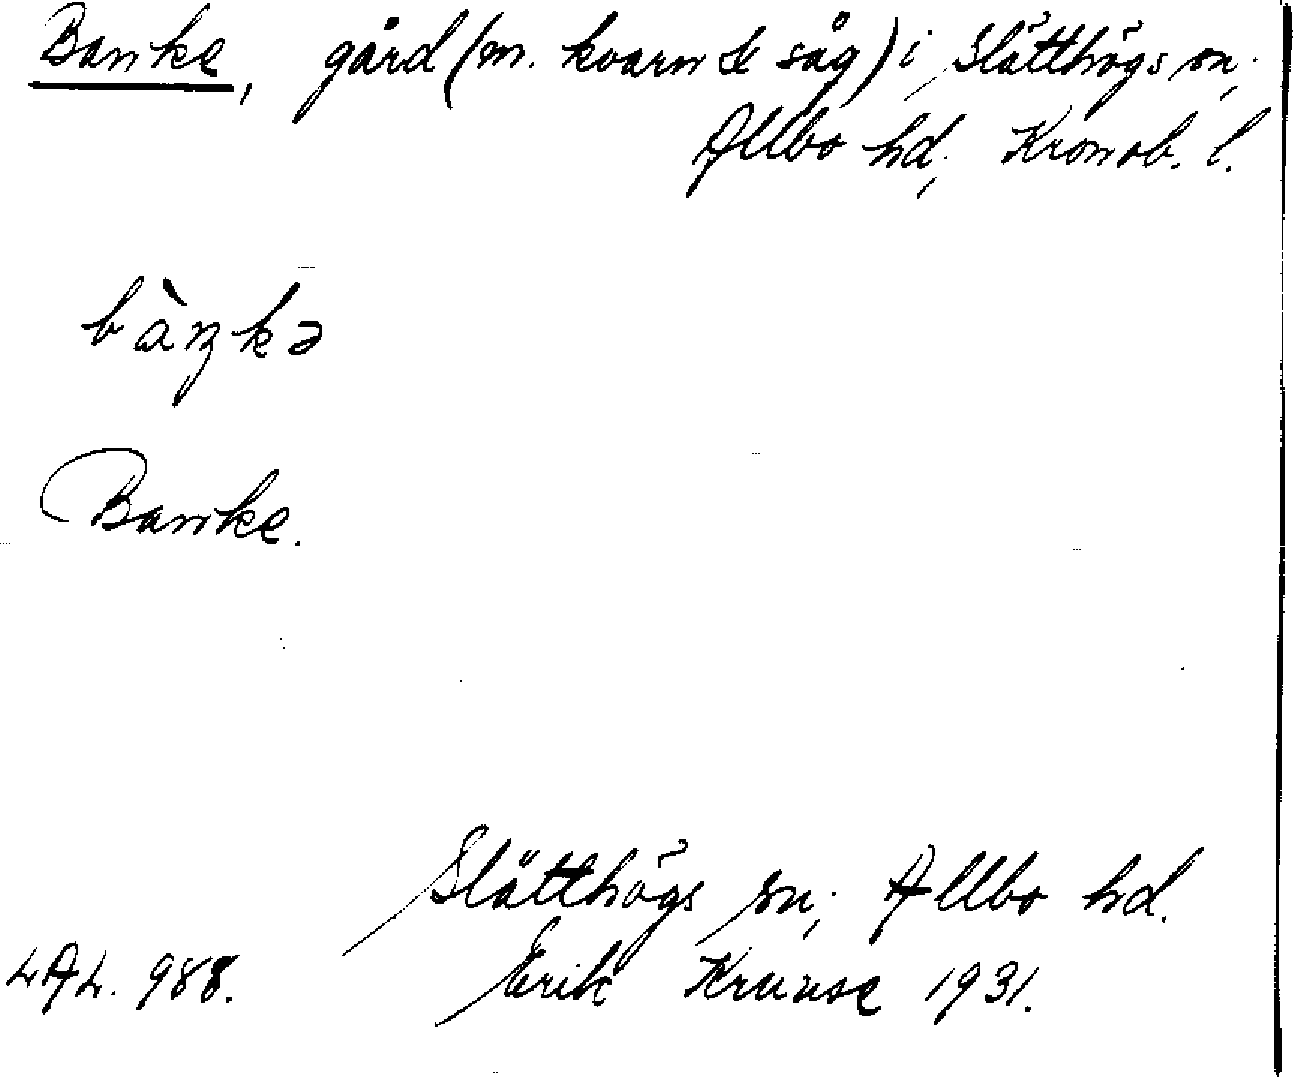 Banke, gård (m. kvarn & såg) i Slätthögs sn;
Allbo hd; Kronob. l.
bàŋkə
Banke.
Slätthögs sn; Allbo hd.
LAL. 988. Erik Kruuse 1931.